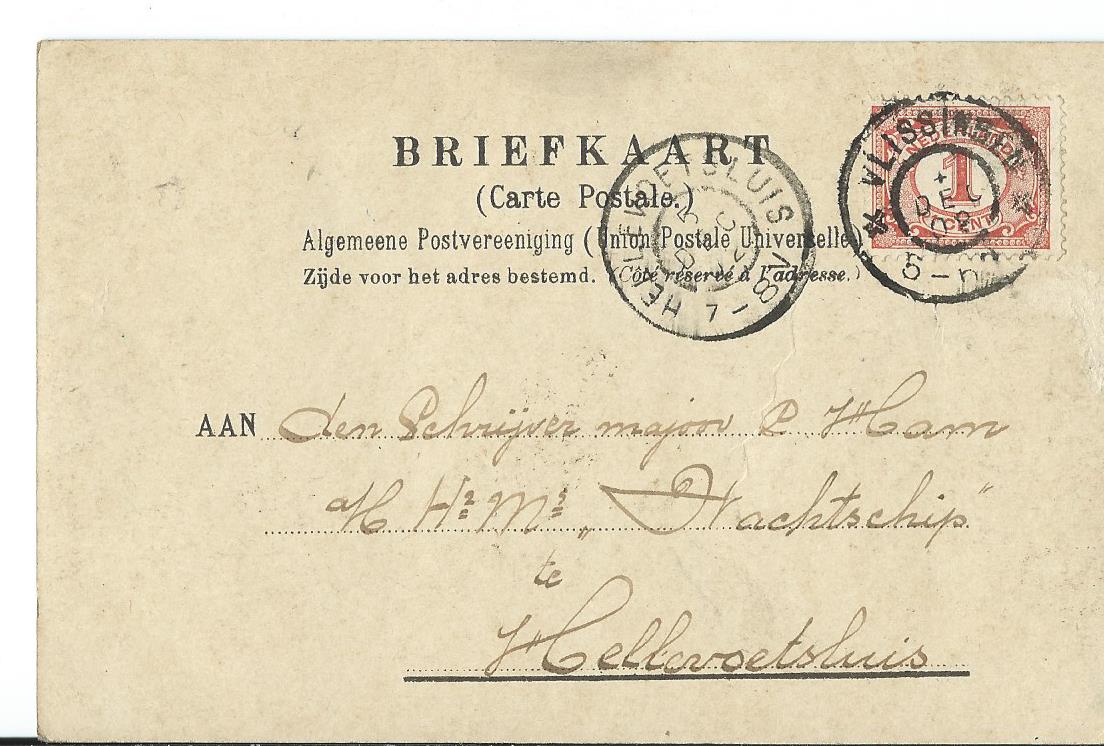 BRIEFKAART
(Carte Postale.)
Algemeene Postvereeniging (Union Postale Universelle)
Zijde voor het adres bestemd. (Côté réservé à l'adresse.)
HELLEVOETSLUIS
5
DEC
7-8V
VLISSINGEN
DEC
5-
NEDERLAND
1
CENT
AAN den Schrijver majoor P Ham
a/b Hr Ms „Wachtschip”
te
Hellevoetsluis